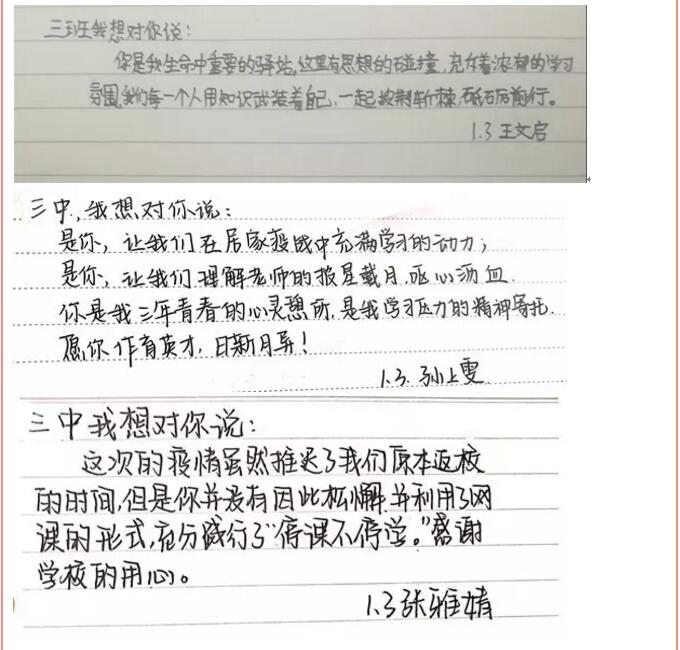 三班我想对你说：
你是我生命中重要的驿站，这里有思想的碰撞，充斥着浓郁的学习
氛围，我们每一个人用知识武装着自己，一起披荆斩棘，砥砺前行。
1.3 王文启
三中，我想对你说：
是你，让我们在居家疫战中充满学习的动力；
是你，让我们理解老师的披星戴月，呕心沥血.
你是我三年青春的心灵憩所，是我学习压力的精神寄托.
愿你作育英才，日新月异！
1.3. 孙上雯
三中我想对你说：
这次的疫情虽然推迟了我们原本返校
的时间，但是你并没有因此松懈，并利用了网
课的形式，充分践行了“停课不停学。”感谢
学校的用心。
1.3张雅婧